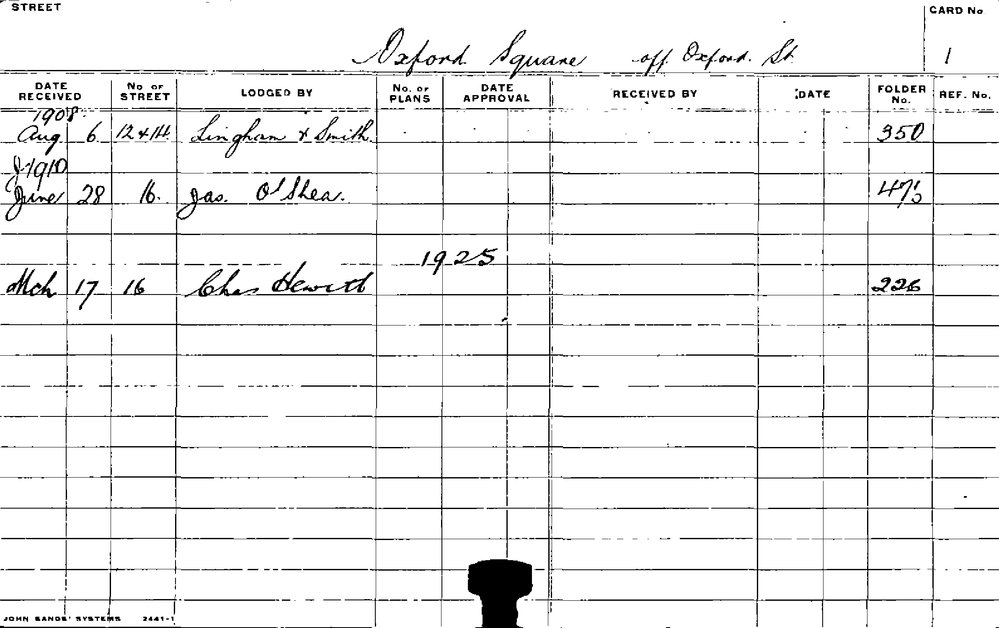 STREET CARD No
Oxford Square off Oxford St. 1
DATE RECEIVED No OF STREET LODGED BY No. OF PLANS DATE APPROVAL RECEIVED BY DATE FOLDER No. REF. No.
1908
Aug 6 12 & 14 Lingham & Smith 350
1910
June 28 16. Jas. O'Shea. 473
1925
Mch 17 16 Chas Hewitt 226
JOHN SANDS' SYSTEMS 2441-1